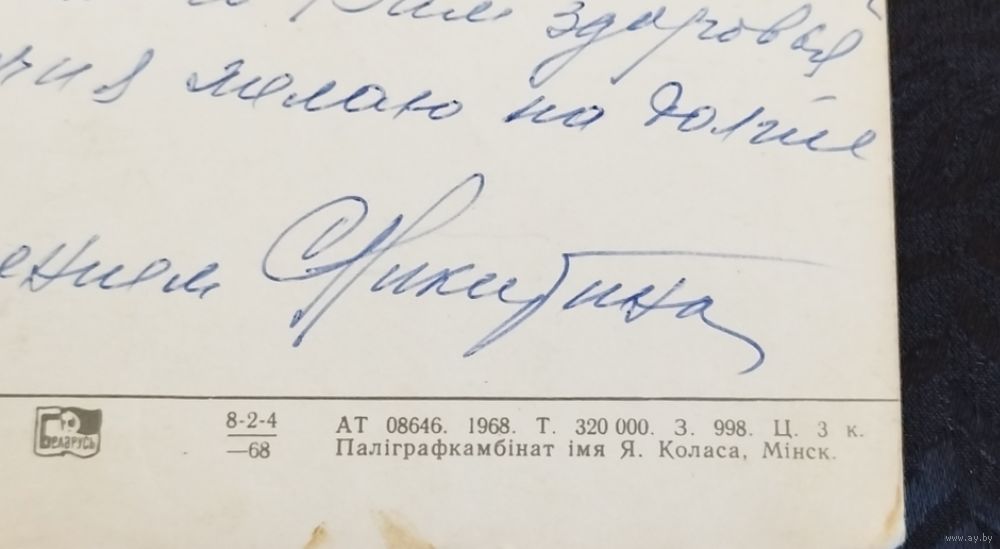 Вам здоровья
желаю на долгие
ением Никитина
Беларусь
8-2-4
—68
АТ 08646. 1968. Т. 320 000. З. 998. Ц. 3 к.
Паліграфкамбінат імя Я. Коласа, Мінск.
www.ay.by